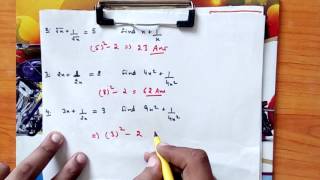 3. √x + 1/√x = 5 find x + 1/x
(5)² - 2 ⇒ 23 Ans
3. 2x + 1/2x = 8 find 4x² + 1/4x²
(8)² - 2 ⇒ 62 Ans
4. 3x + 1/2x = 3 find 9x² + 1/4x²
⇒ (3)² - 2